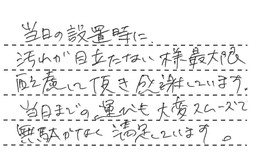 当日の設置時に
汚れが目立たない様最大限
配慮して頂き感謝しています。
当日までの運びも大変スムーズで
無駄がなく満足しています。